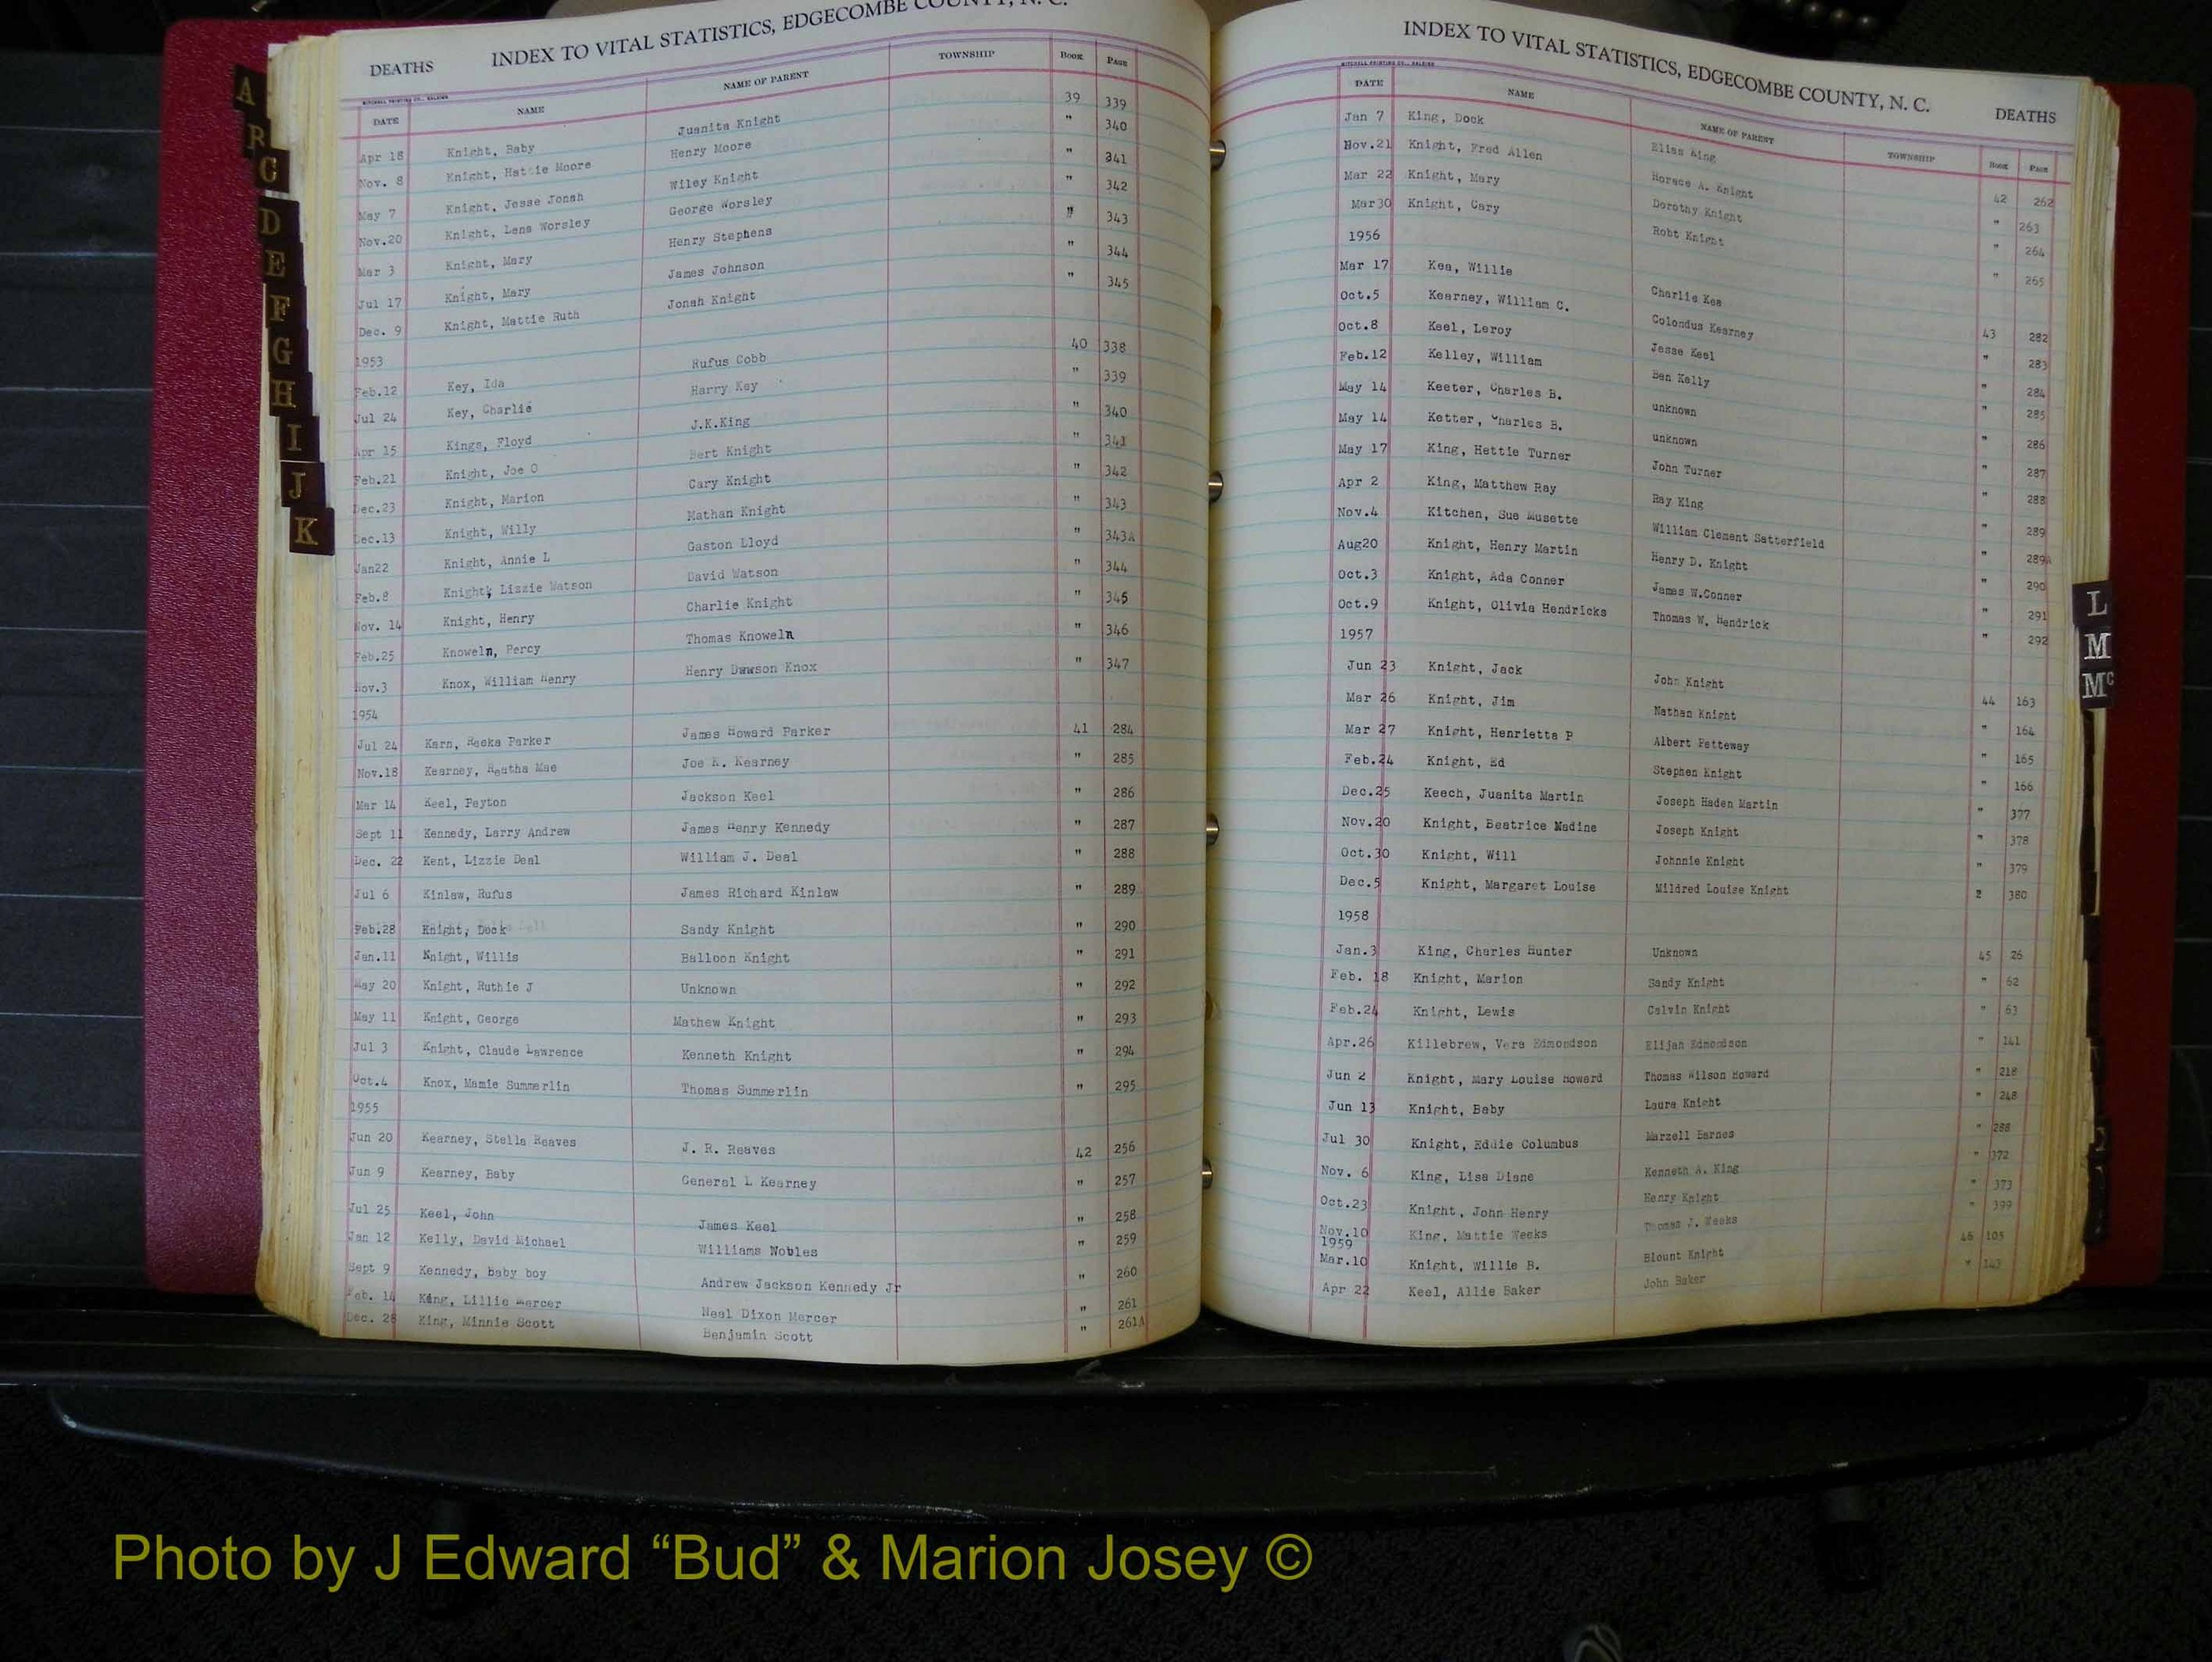 A
R
C
D
E
F
G
H
I
J
K
DEATHS INDEX TO VITAL STATISTICS, EDGECOMBE COUNTY, N. C.
MITCHELL PRINTING CO., RALEIGH
DATE NAME NAME OF PARENT TOWNSHIP BOOK PAGE
Apr 18 Knight, Baby Juanita Knight 39 339
Nov. 8 Knight, Hattie Moore Henry Moore " 340
May 7 Knight, Jesse Jonah Wiley Knight " 341
Nov.20 Knight, Lena Worsley George Worsley " 342
Mar 3 Knight, Mary Henry Stephens " 343
Jul 17 Knight, Mary James Johnson " 344
Dec. 9 Knight, Mattie Ruth Jonah Knight " 345
1953
Feb.12 Key, Ida Rufus Cobb 40 338
Jul 24 Key, Charlie Harry Key " 339
Apr 15 Kings, Floyd J.K.King " 340
Feb.21 Knight, Joe O Bert Knight " 341
Dec.23 Knight, Marion Cary Knight " 342
Dec.13 Knight, Willy Nathan Knight " 343
Jan22 Knight, Annie L Gaston Lloyd " 343A
Feb.8 Knight, Lizzie Watson David Watson " 344
Nov. 14 Knight, Henry Charlie Knight " 345
Feb.25 Knoweln, Percy Thomas Knoweln " 346
Nov.3 Knox, William Henry Henry Dawson Knox " 347
1954
Jul 24 Karn, Reeka Parker James Howard Parker 41 284
Nov.18 Kearney, Reatha Mae Joe K. Kearney " 285
Mar 14 Keel, Peyton Jackson Keel " 286
Sept 11 Kennedy, Larry Andrew James Henry Kennedy " 287
Dec. 22 Kent, Lizzie Deal William J. Deal " 288
Jul 6 Kinlaw, Rufus James Richard Kinlaw " 289
Feb.28 Knight, Dock Sandy Knight " 290
Jan.11 Knight, Willis Balloon Knight " 291
May 20 Knight, Ruthie J Unknown " 292
May 11 Knight, George Mathew Knight " 293
Jul 3 Knight, Claude Lawrence Kenneth Knight " 294
Oct.4 Knox, Mamie Summerlin Thomas Summerlin " 295
1955
Jun 20 Kearney, Stella Reaves J. R. Reaves 42 256
Jun 9 Kearney, Baby General L Kearney " 257
Jul 25 Keel, John James Keel " 258
Jan 12 Kelly, David Michael Williams Nobles " 259
Sept 9 Kennedy, baby boy Andrew Jackson Kennedy Jr " 260
Feb. 14 King, Lillie Mercer Neal Dixon Mercer " 261
Dec. 28 King, Minnie Scott Benjamin Scott " 261A
INDEX TO VITAL STATISTICS, EDGECOMBE COUNTY, N. C. DEATHS
MITCHELL PRINTING CO., RALEIGH
DATE NAME NAME OF PARENT TOWNSHIP BOOK PAGE
Jan 7 King, Dock Elias King 42 262
Nov.21 Knight, Fred Allen Horace A. Knight " 263
Mar 22 Knight, Mary Dorothy Knight " 264
Mar 30 Knight, Cary Robt Knight " 265
1956
Mar 17 Kea, Willie Charlie Kea 43 282
Oct.5 Kearney, William C. Colondus Kearney " 283
Oct.8 Keel, Leroy Jesse Keel " 284
Feb.12 Kelley, William Ben Kelly " 285
May 14 Keeter, Charles B. unknown " 286
May 14 Ketter, Charles B. unknown " 287
May 17 King, Hettie Turner John Turner " 288
Apr 2 King, Matthew Ray Ray King " 289
Nov.4 Kitchen, Sue Musette William Clement Satterfield " 289A
Aug20 Knight, Henry Martin Henry D. Knight " 290
Oct.3 Knight, Ada Conner James W.Conner " 291
Oct.9 Knight, Olivia Hendricks Thomas W. Hendrick " 292
1957
Jun 23 Knight, Jack John Knight 44 163
Mar 26 Knight, Jim Nathan Knight " 164
Mar 27 Knight, Henrietta P Albert Petteway " 165
Feb.24 Knight, Ed Stephen Knight " 166
Dec.25 Keech, Juanita Martin Joseph Haden Martin " 377
Nov.20 Knight, Beatrice Nadine Joseph Knight " 378
Oct.30 Knight, Will Johnnie Knight " 379
Dec.5 Knight, Margaret Louise Mildred Louise Knight 2 380
1958
Jan.3 King, Charles Hunter Unknown 45 26
Feb. 18 Knight, Marion Sandy Knight " 62
Feb.24 Knight, Lewis Calvin Knight " 63
Apr.26 Killebrew, Vera Edmondson Elijah Edmondson " 141
Jun 2 Knight, Mary Louise Howard Thomas Wilson Howard " 218
Jun 13 Knight, Baby Laura Knight " 248
Jul 30 Knight, Eddie Columbus Marzell Barnes " 288
Nov. 6 King, Lisa Diane Kenneth A. King " 372
Oct.23 Knight, John Henry Henry Knight " 373
Nov.10 King, Mattie Weeks Thomas J. Weeks " 399
1959
Mar.10 Knight, Willie B. Blount Knight 46 105
Apr 22 Keel, Allie Baker John Baker " 143
L
M
Mc
Photo by J Edward “Bud” & Marion Josey ©